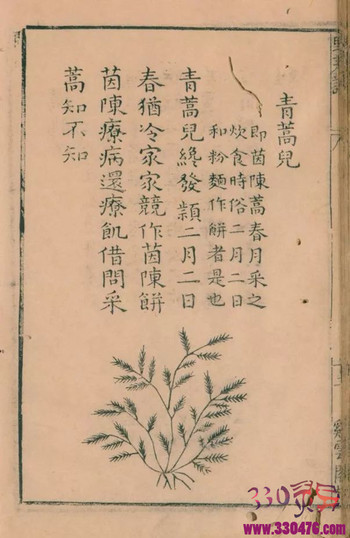 青蒿兒
即茵陳蒿春月采之
炊食時俗二月二日
和粉麵作餅者是也
青蒿兒纔發穎二月二日
春猶冷家家競作茵陳餅
茵陳療病還療飢借問采
蒿知不知
330
www.330476.com